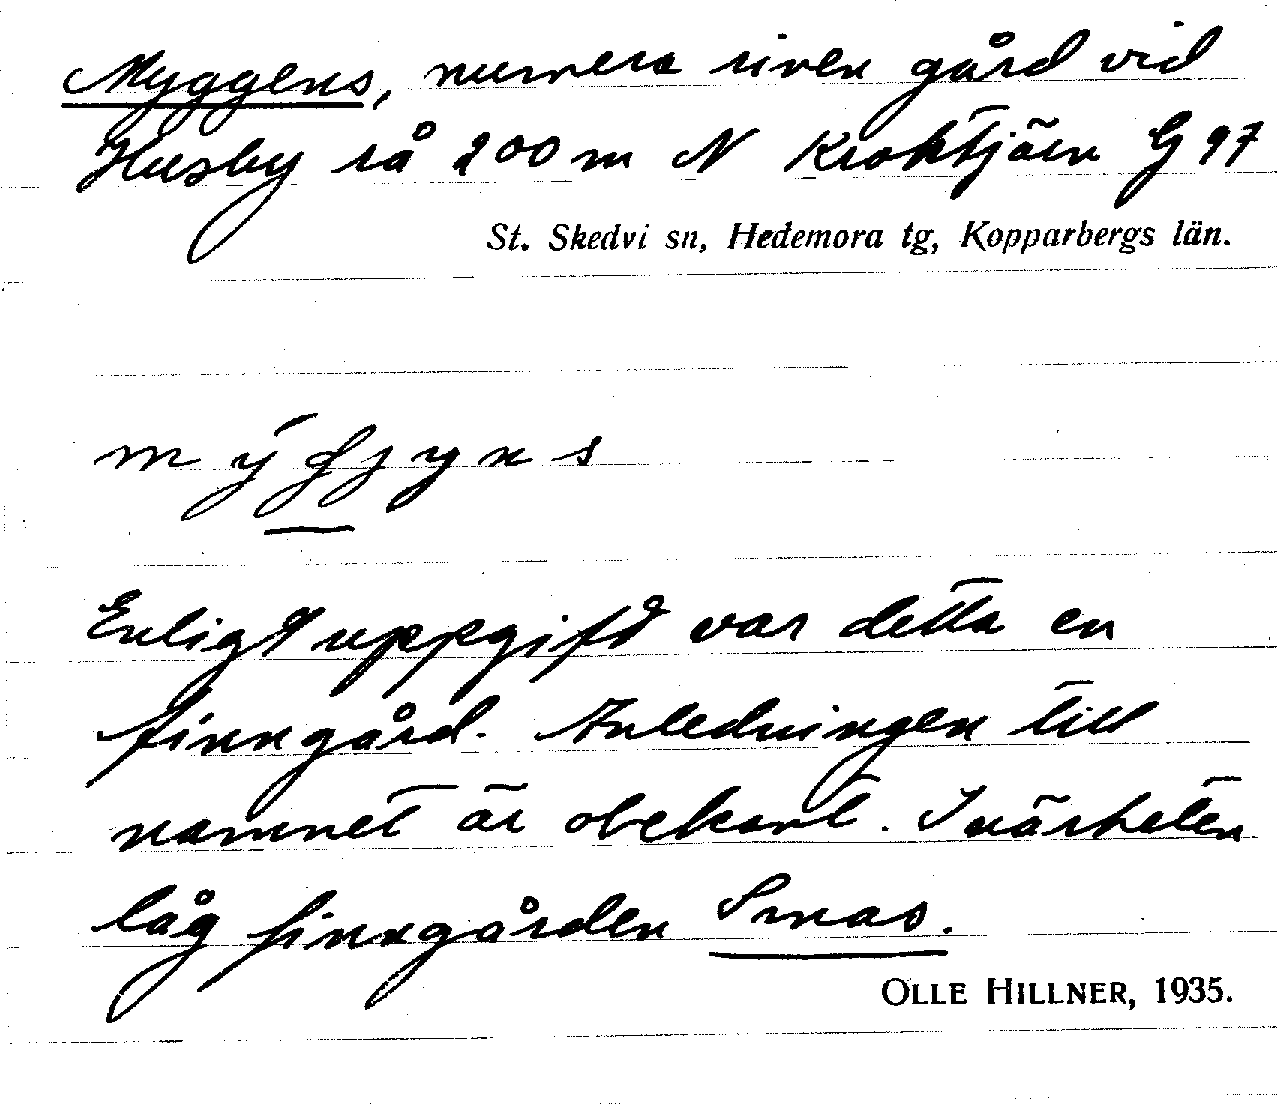 Myggens, numera riven gård vid
Husby rå 200 m N Kroktjärn G 97
St. Skedvi sn, Hedemora tg, Kopparbergs län.
Enligt uppgift var detta en
finngård. Anledningen till
namnet är obekant. I närheten
låg finngården Smas.
OLLE HILLNER, 1935.